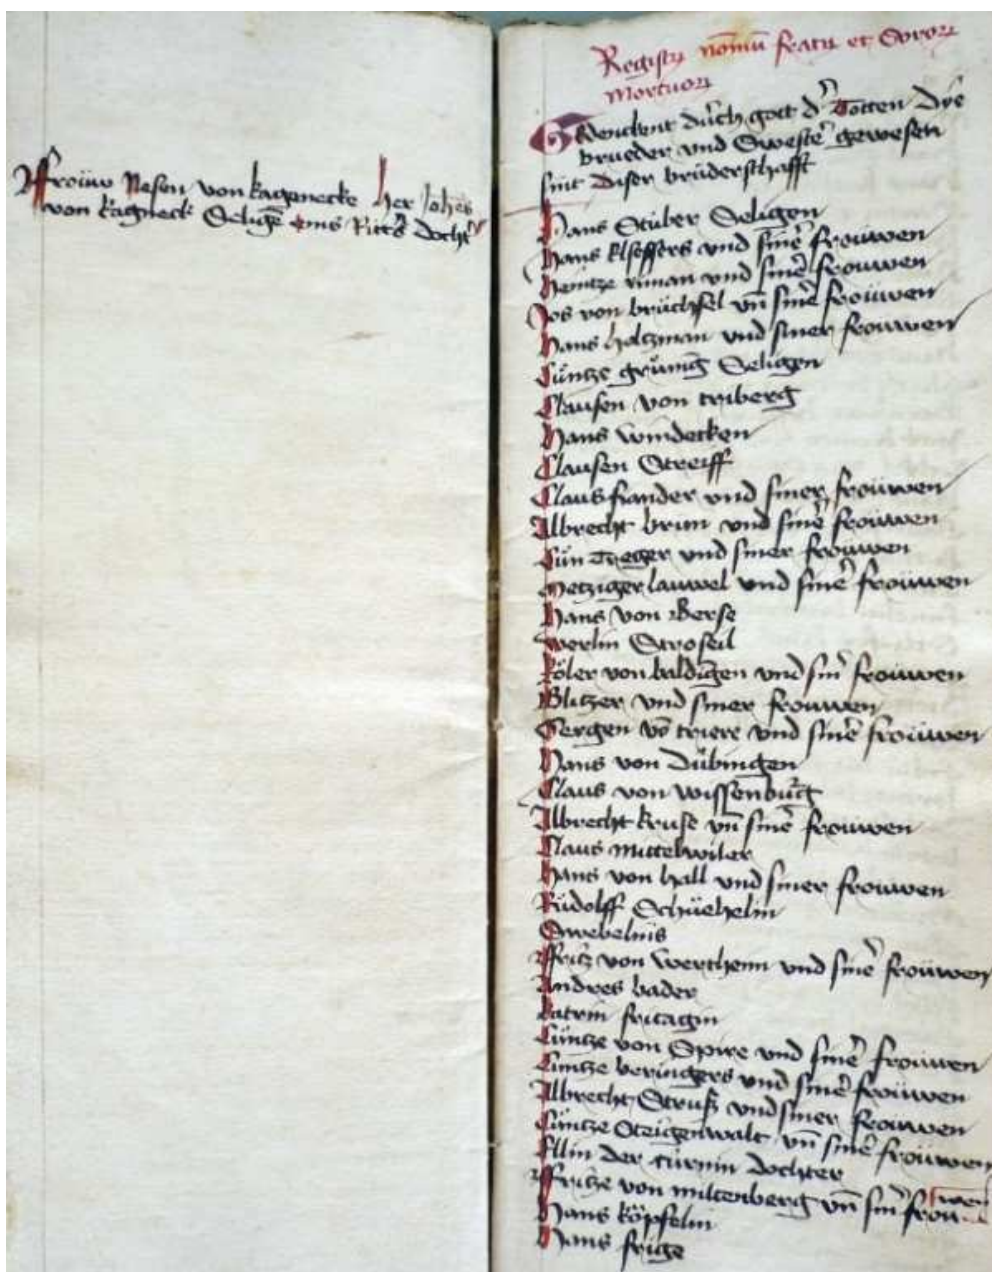 Frouw Nesen von kagenecke her Johēs
von kagneck Seligē eins Ritt's docht'
Registrū nomīū fratrū et Sororū
mortuorū
Gedenckent durch gott d' Totten dye
brueder und Swest' gewesen
sint diser bruderschafft
Hans Stuber Seligen
Hans und sinē frouwen
Heintze und sinē frouwen
Jos von brüchssel vn̄ sinē frouwen
Hans holtzman und siner frouwen
Cuntze Seligen
Clausen von triberg
Hans windecken
Clausen Streiff
Claus fiander und siner frouwen
Albrecht brun und sinē frouwen
Cūn Treger und siner frouwen
Metziger lauwel und sinē frouwen
Hans von Berse
werlin Stroseil
köler von baldigen und sin̄ frouwen
Blitzer und siner frouwen
Gergen vō triere und sinē frouwen
Hans von Dübingen
Claus von wissenburg
Albrecht kruse vn̄ sinē frouwen
Claus mittelwiler
Hans von hall und siner frouwen
Rüdolff Schüchelin
Swebelnis
Fritz von wertheim und sinē frouwen
Andres bader
katrin fritagin
Cüntze von Spire und sinē frouwen
Cüntze beringers und sinē frouwen
Albrecht Struß und siner frouwen
Cüntze Steigenwalt vn̄ sinē frouwen
Ellin der türnin dochter
Fritze von miltenberg vn̄ sin̄ frouwen
Hans köpfelin
Hans frige